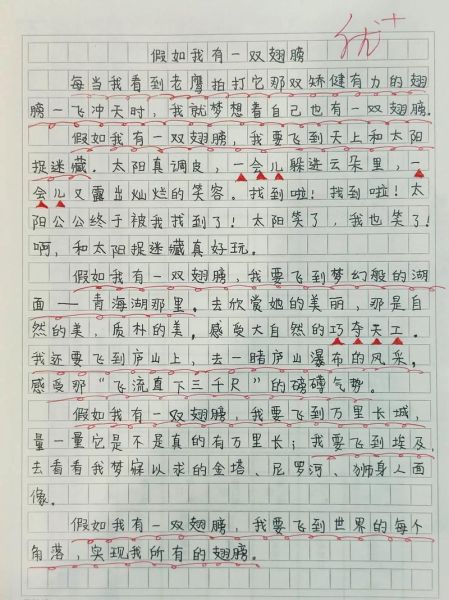 优+
假如我有一双翅膀
每当我看到老鹰拍打它那双矫健有力的翅
膀一飞冲天时，我就梦想着自己也有一双翅膀。
假如我有一双翅膀，我要飞到天上和太阳
捉迷藏。太阳真调良，一会儿躲进云朵里，一
会儿又露出灿烂的笑容。找到啦！找到啦！太
阳公公终于被我找到了！太阳笑了，我也笑了！
啊，和太阳捉迷藏真好玩。
假如我有一双翅膀，我要飞到梦幻般的湖
面——青海湖那里。去欣赏她的美丽，那是自
然的美，质朴的美，感受大自然的巧夺天工。
我还要飞到庐山上，去一睹庐山瀑布的风采，
感受那“飞流直下三千尺”的磅礴气势。
假如我有一双翅膀，我要飞到万里长城，
量一量它是不是真的有万里长；我要飞到埃及，
去看看我梦寐以求的金塔、尼罗河、狮身人面
像。
假如我有一双翅膀，我要飞到世界的每个
角落，实现我所有的翅膀。